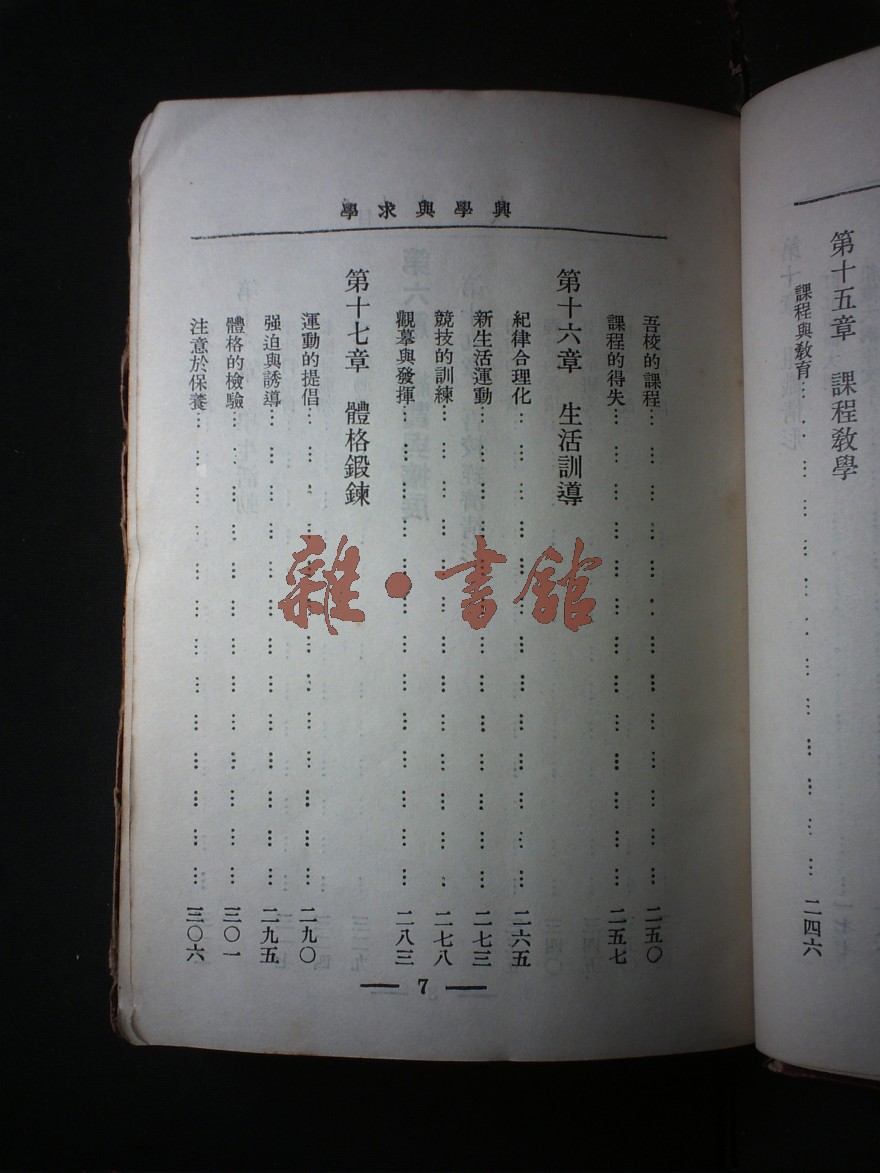 第十五章　課程教學
課程與教育………………二四六
興學與求學
吾校的課程………………二五〇
課程的得失………………二五七
第十六章　生活訓導
紀律合理化………………二六五
新生活運動………………二七三
競技的訓練………………二七八
觀摹與發揮………………二八三
第十七章　體格鍛鍊
運動的提倡………………二九〇
强迫與誘導………………二九五
體格的檢驗………………三〇一
注意於保養………………三〇六
— 7 —
雜·書館